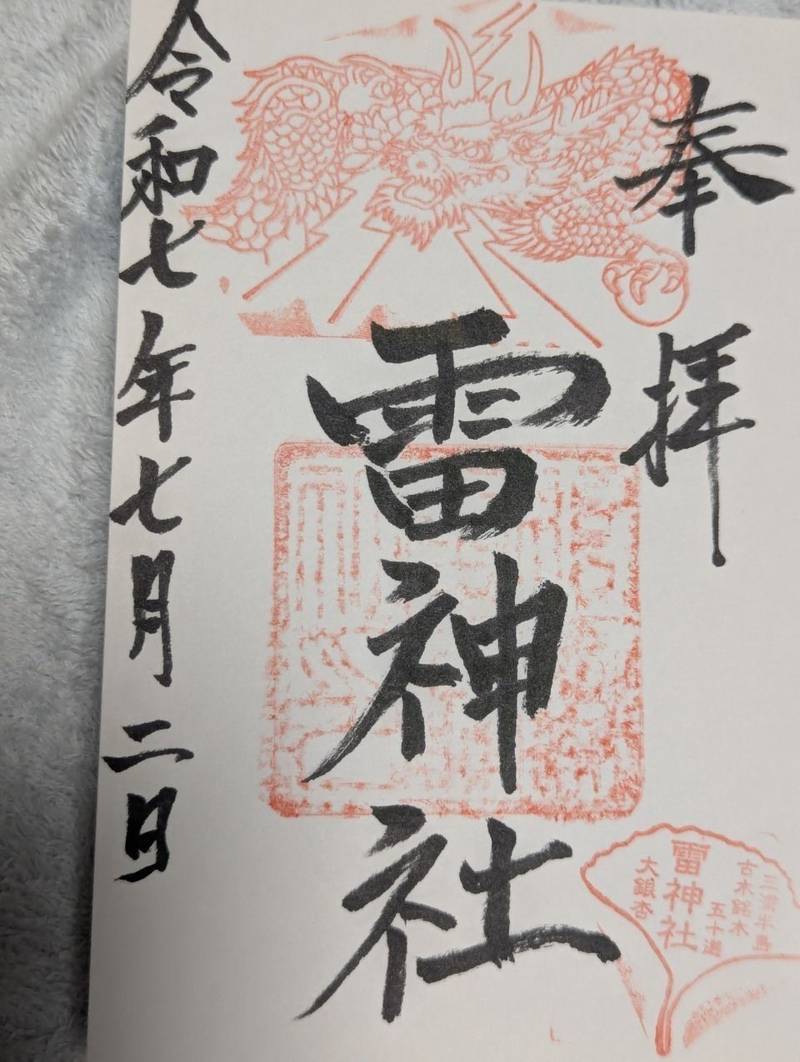 奉拝
雷神社
令和七年七月二日
三浦半島
古木銘木
五十選
雷神社
大銀杏